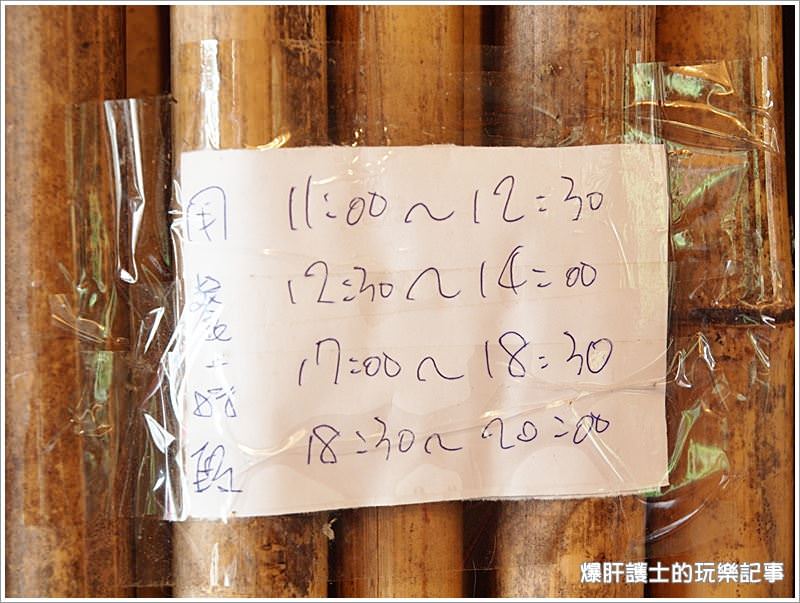 用餐時段
11:00~12:30
12:30~14:00
17:00~18:30
18:30~20:00
爆肝護士的玩樂記事